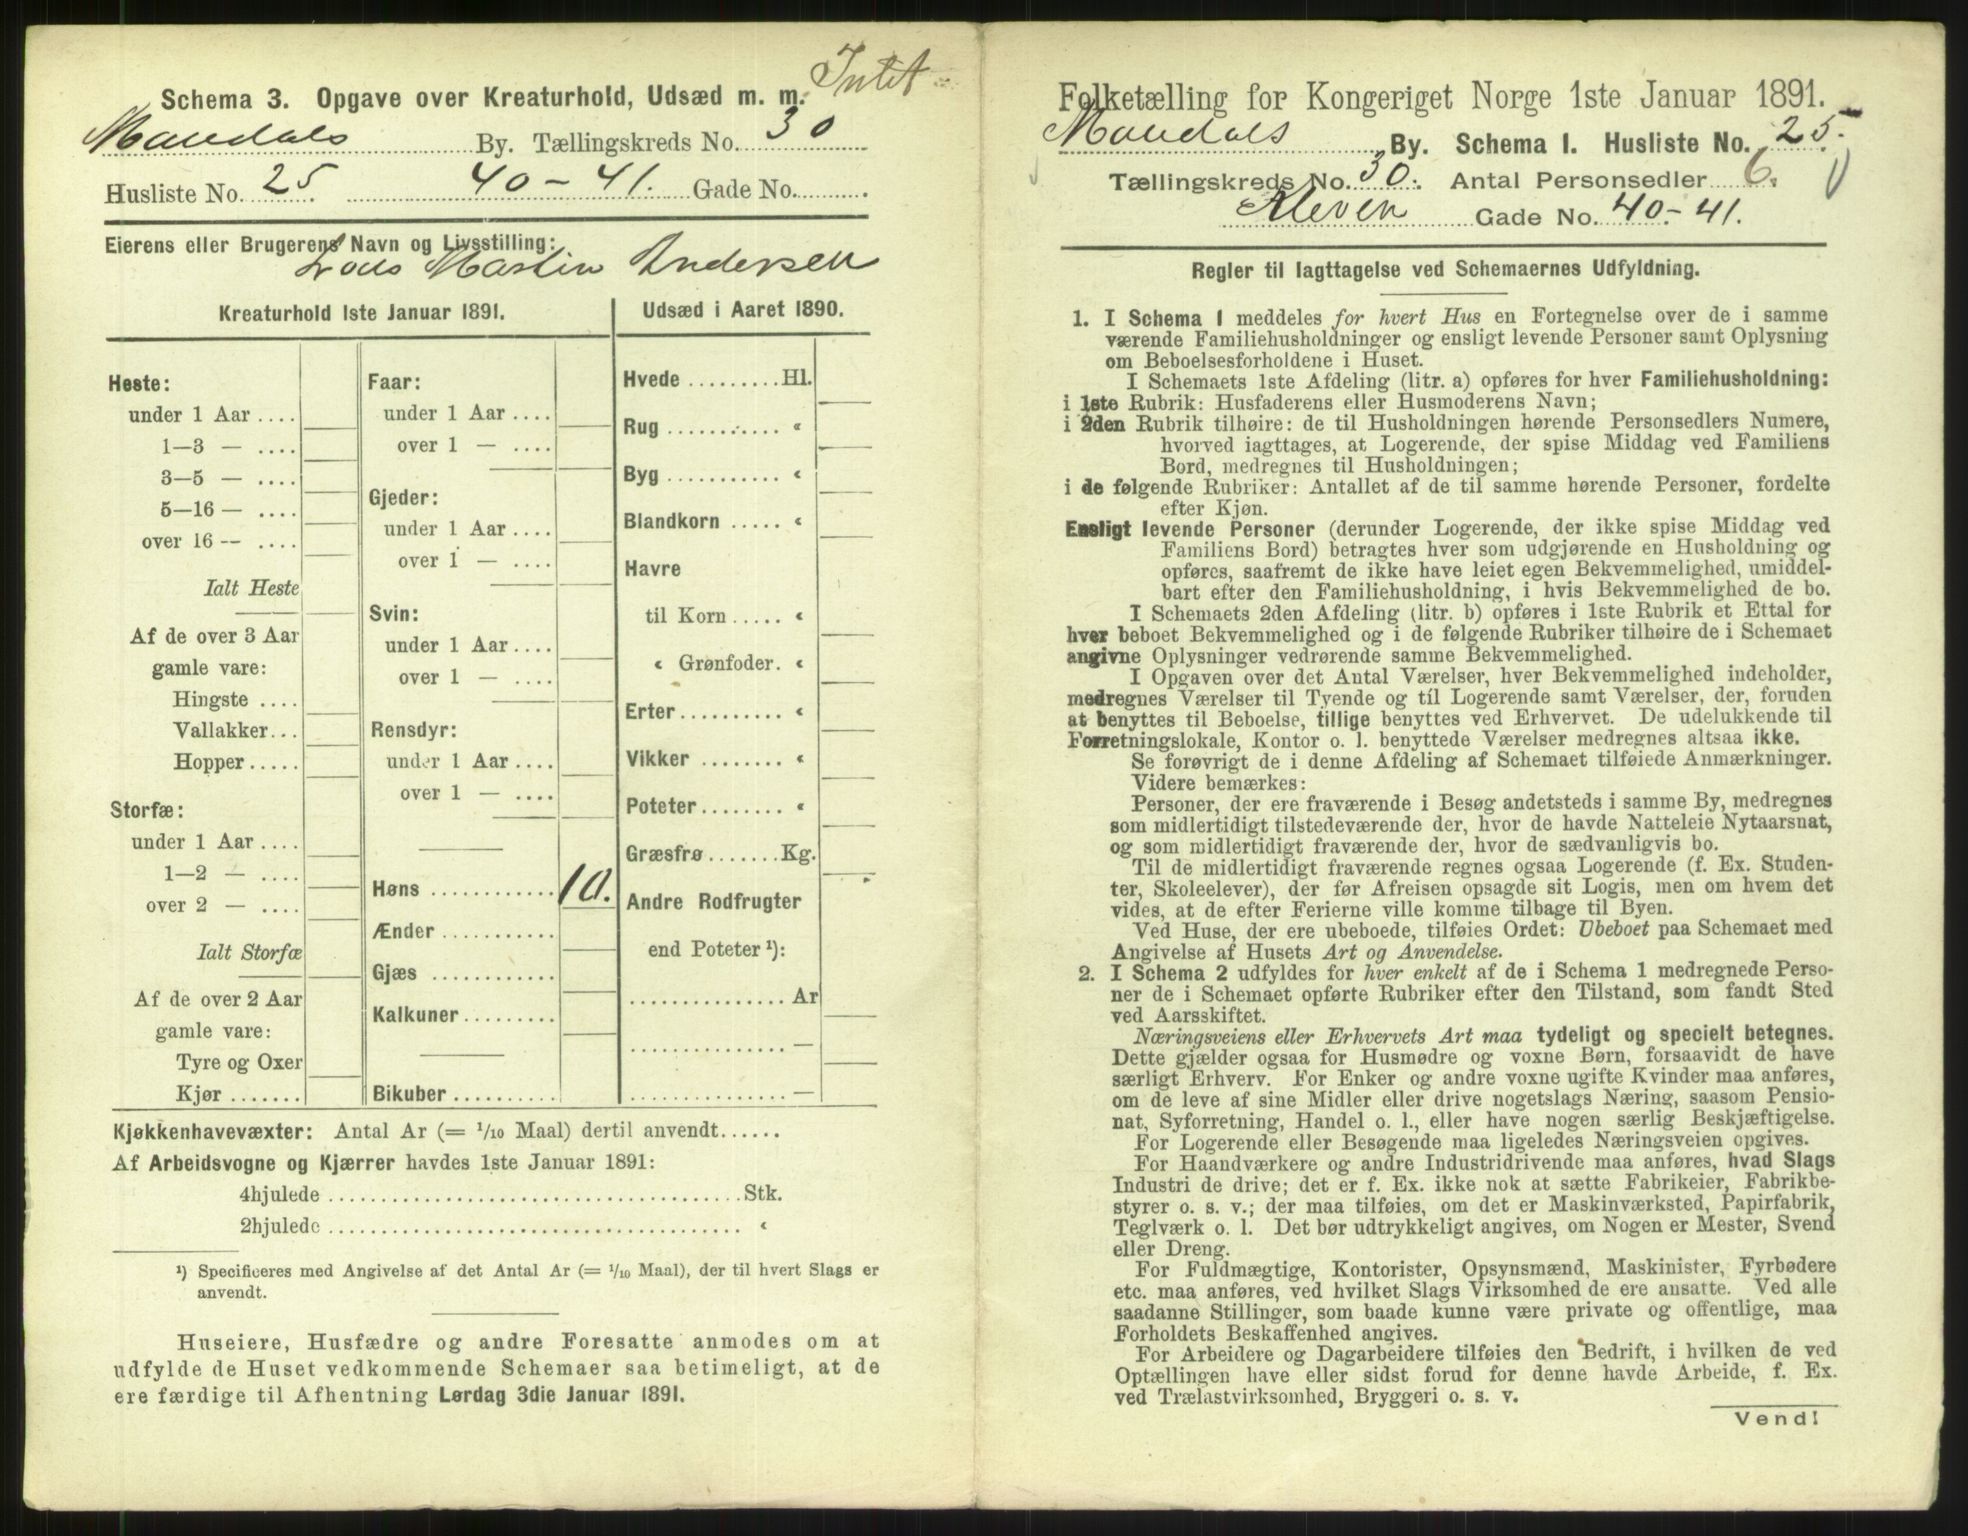 Intet
Schema 3. Opgave over Kreaturhold, Udsæd m. m.
Mandals By. Tællingskreds No. 30
Husliste No. 25. 40-41. Gade No.
Eierens eller Brugerens Navn og Livsstilling:
Lars Martin Andersen
Kreaturhold 1ste Januar 1891.
Heste:
under 1 Aar ....
1—3 — ....
3—5 — ....
5—16 — ....
over 16 — ....
Ialt Heste
Af de over 3 Aar
gamle vare:
Hingste ....
Vallakker...
Hopper.....
Storfæ:
under 1 Aar ....
1—2 — ....
over 2 — ....
Ialt Storfæ
Af de over 2 Aar
gamle vare:
Tyre og Oxer
Kjør .......
Faar:
under 1 Aar ....
over 1 — ....
Gjeder:
under 1 Aar ....
over 1 — ....
Svin:
under 1 Aar ....
over 1 — ....
Rensdyr:
under 1 Aar ....
over 1 — ....
Høns ............ 10.
Ænder ...........
Gjæs ............
Kalkuner.........
Bikuber..........
Udsæd i Aaret 1890.
Hvede .........Hl.
Rug ........... «
Byg ........... «
Blandkorn ..... «
Havre
til Korn..... «
« Grønfoder. «
Erter.......... «
Vikker ........ «
Poteter........ «
Græsfrø.......Kg.
Andre Rodfrugter
end Poteter ¹):
............... Ar
............... —
............... —
Kjøkkenhavevæxter: Antal Ar (= 1/10 Maal) dertil anvendt......
Af Arbeidsvogne og Kjærrer havdes 1ste Januar 1891:
4hjulede ........................................Stk.
2hjulede ........................................ «
¹) Specificeres med Angivelse af det Antal Ar (= 1/10 Maal), der til hvert Slags er
anvendt.
Huseiere, Husfædre og andre Foresatte anmodes om at
udfylde de Huset vedkommende Schemaer saa betimeligt, at de
ere færdige til Afhentning Lørdag 3die Januar 1891.
Folketælling for Kongeriget Norge 1ste Januar 1891.
Mandals By. Schema 1. Husliste No. 25.
Tællingskreds No. 30. Antal Personsedler 6.
Kleven Gade No. 40.-41.
Regler til Iagttagelse ved Schemaernes Udfyldning.
1. I Schema 1 meddeles for hvert Hus en Fortegnelse over de i samme
værende Familiehusholdninger og ensligt levende Personer samt Oplysning
om Beboelsesforholdene i Huset.
I Schemaets 1ste Afdeling (litr. a) opføres for hver Familiehusholdning:
i 1ste Rubrik: Husfaderens eller Husmoderens Navn;
i 2den Rubrik tilhøire: de til Husholdningen hørende Personsedlers Numere,
hvorved iagttages, at Logerende, der spise Middag ved Familiens
Bord, medregnes til Husholdningen;
i de følgende Rubriker: Antallet af de til samme hørende Personer, fordelte
efter Kjøn.
Ensligt levende Personer (derunder Logerende, der ikke spise Middag ved
Familiens Bord) betragtes hver som udgjørende en Husholdning og
opføres, saafremt de ikke have leiet egen Bekvemmelighed, umiddel-
bart efter den Familiehusholdning, i hvis Bekvemmelighed de bo.
I Schemaets 2den Afdeling (litr. b) opføres i 1ste Rubrik et Ettal for
hver beboet Bekvemmelighed og i de følgende Rubriker tilhøire de i Schemaet
angivne Oplysninger vedrørende samme Bekvemmelighed.
I Opgaven over det Antal Værelser, hver Bekvemmelighed indeholder,
medregnes Værelser til Tyende og til Logerende samt Værelser, der, foruden
at benyttes til Beboelse, tillige benyttes ved Erhvervet. De udelukkende til
Forretningslokale, Kontor o. l. benyttede Værelser medregnes altsaa ikke.
Se forøvrigt de i denne Afdeling af Schemaet tilføiede Anmærkninger.
Videre bemærkes:
Personer, der ere fraværende i Besøg andetsteds i samme By, medregnes
som midlertidigt tilstedeværende der, hvor de havde Natteleie Nytaarsnat,
og som midlertidigt fraværende der, hvor de sædvanligvis bo.
Til de midlertidigt fraværende regnes ogsaa Logerende (f. Ex. Studen-
ter, Skoleelever), der før Afreisen opsagde sit Logis, men om hvem det
vides, at de efter Ferierne ville komme tilbage til Byen.
Ved Huse, der ere ubeboede, tilføies Ordet: Ubeboet paa Schemaet med
Angivelse af Husets Art og Anvendelse.
2. I Schema 2 udfyldes for hver enkelt af de i Schema 1 medregnede Perso-
ner de i Schemaet opførte Rubriker efter den Tilstand, som fandt Sted
ved Aarsskiftet.
Næringsveiens eller Erhvervets Art maa tydeligt og specielt betegnes.
Dette gjælder ogsaa for Husmødre og voxne Børn, forsaavidt de have
særligt Erhverv. For Enker og andre voxne ugifte Kvinder maa anføres,
om de leve af sine Midler eller drive nogetslags Næring, saasom Pensio-
nat, Syforretning, Handel o. l., eller have nogen særlig Beskjæftigelse.
For Logerende eller Besøgende maa ligeledes Næringsveien opgives.
For Haandværkere og andre Industridrivende maa anføres, hvad Slags
Industri de drive; det er f. Ex. ikke nok at sætte Fabrikeier, Fabrikbe-
styrer o. s. v.; der maa tilføies, om det er Maskinværksted, Papirfabrik,
Teglværk o. l. Det bør udtrykkeligt angives, om Nogen er Mester, Svend
eller Dreng.
For Fuldmægtige, Kontorister, Opsynsmænd, Maskinister, Fyrbødere
etc. maa anføres, ved hvilket Slags Virksomhed de ere ansatte. Ved alle
saadanne Stillinger, som baade kunne være private og offentlige, maa
Forholdets Beskaffenhed angives.
For Arbeidere og Dagarbeidere tilføies den Bedrift, i hvilken de ved
Optællingen have eller sidst forud for denne havde Arbeide, f. Ex.
ved Trælastvirksomhed, Bryggeri o. s. v.
Vend!